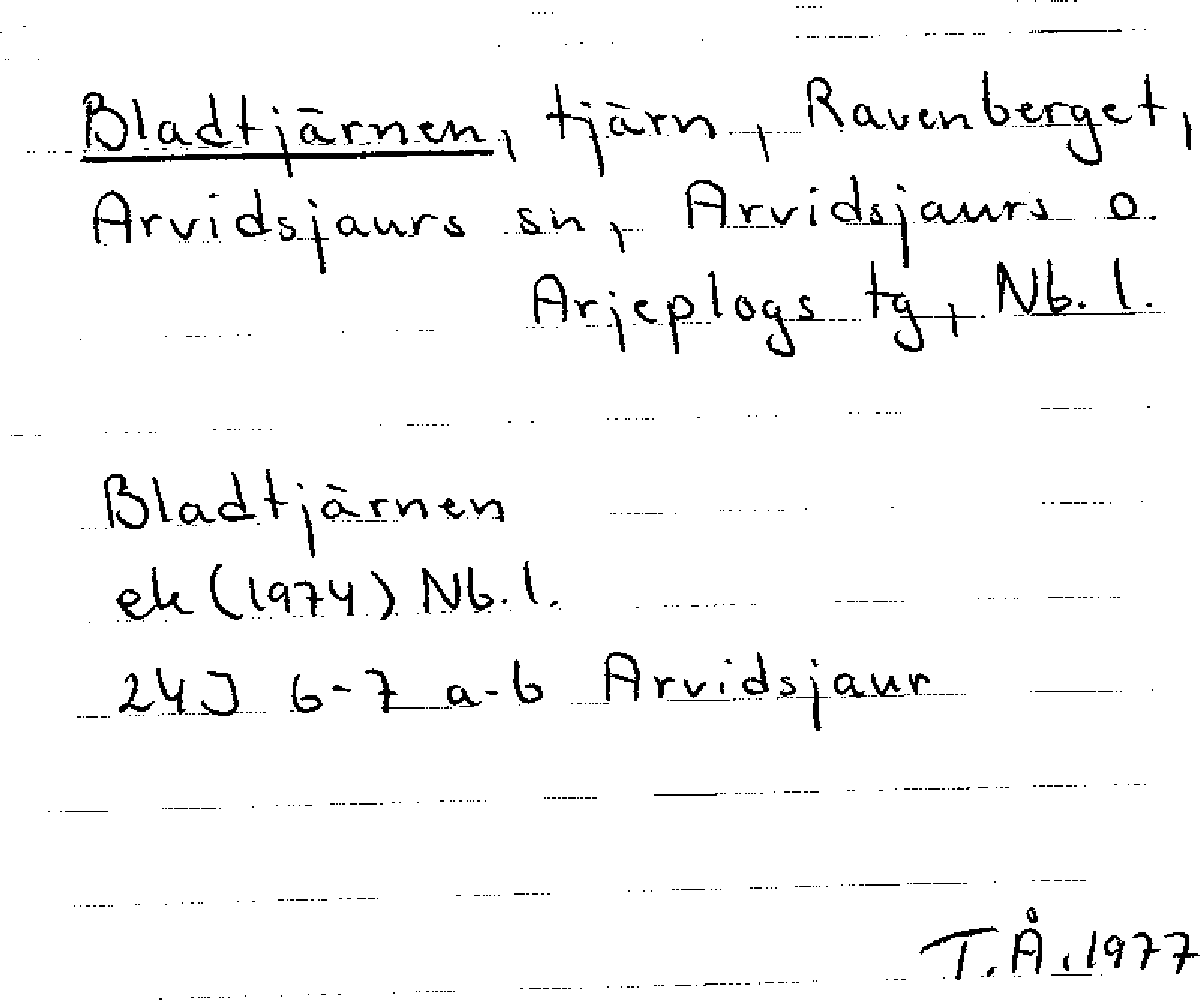 Bladtjärnen, tjärn, Ravenberget,
Arvidsjaurs sn, Arvidsjaurs o.
Arjeplogs tg, Nb. l.
Bladtjärnen
ek (1974) Nb. l.
24J 6-7 a-b Arvidsjaur
T.Å. 1977